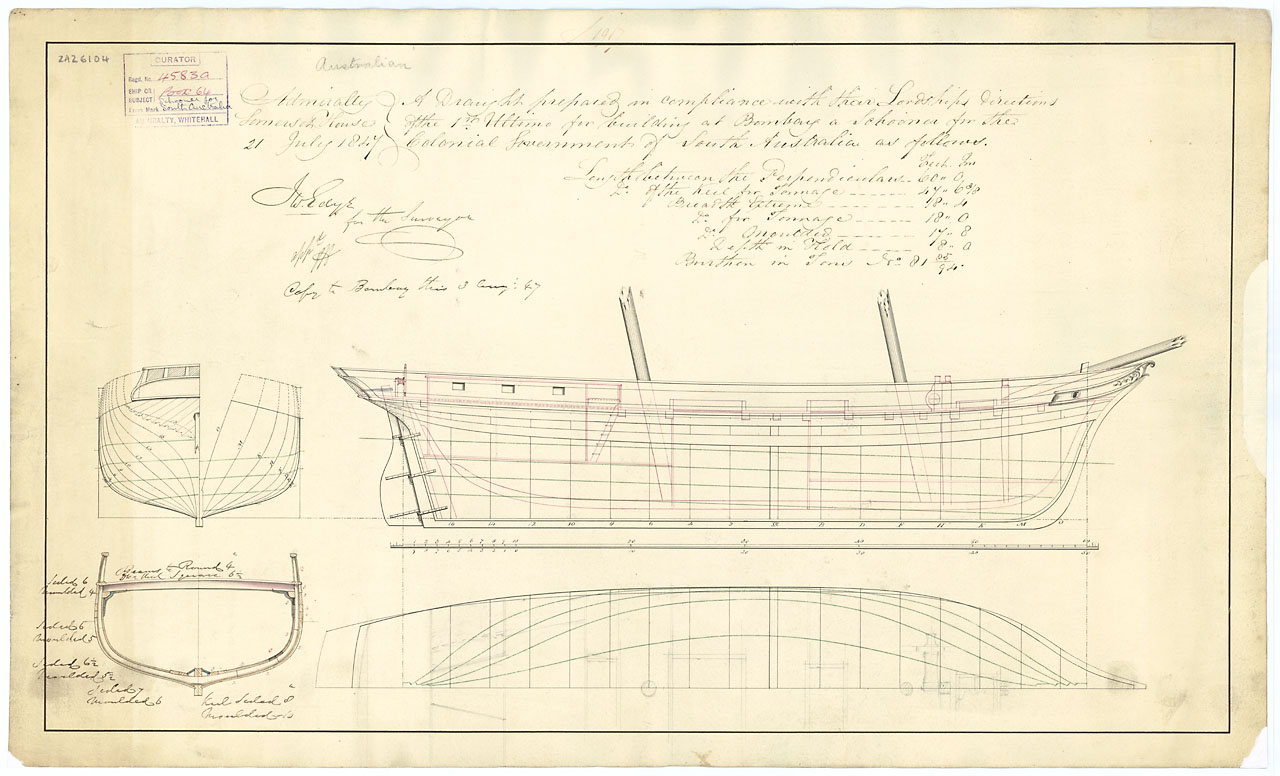 ZAZ6104
CURATOR
Regd. No. 4583a
SHIP OR
SUBJECT Schooner for
South Australia
ADMIRALTY, WHITEHALL
Australian
Admiralty
Somerset House
21 July 1847
A Draught prepared in compliance with their Lordships directions
of the 1st Ultimo for building at Bombay a Schooner for the
Colonial Government of South Australia as follows.
Feet Ins
Length between the Perpendiculars 60 " 0
Do. of the keel for Tonnage 47 " 6 3/8
Breadth Extreme 18 " 4
Do. for Tonnage 18 " 0
Do. Moulded 17 " 8
Depth in Hold 8 " 0
Burthen in Tons No. 81 85/94
Jno Edye
for the Surveyor
Copy to Bombay this 3 Aug: 47
Beams to Round 4
Sided 6
Moulded 4
Sided 6
Moulded 5
Sided 6½
Moulded 5½
Sided 7
Moulded 6
Keel Sided 8
Moulded